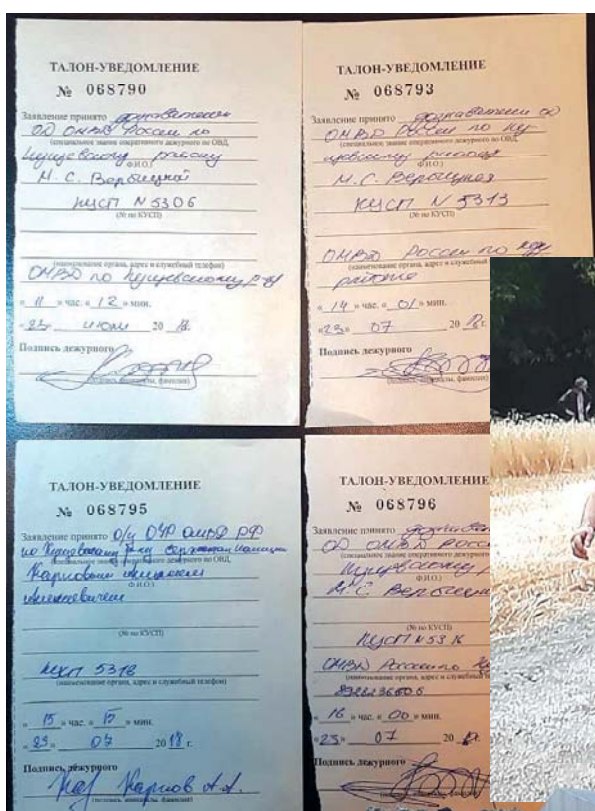 ТАЛОН-УВЕДОМЛЕНИЕ
№ 068790
Заявление принято дознавателем
ОД ОМВД России по
(специальное звание оперативного дежурного по ОВД,
Кущевскому району
Ф.И.О.)
М. С. Вербицкой
КУСП N 5306
(№ по КУСП)
(наименование органа, адрес и служебный телефон)
ОМВД по Кущевскому р-ну
« 11 » час. « 12 » мин.
« 23 » июля 20 18.
Подпись дежурного
(подпись, инициалы, фамилия)
ТАЛОН-УВЕДОМЛЕНИЕ
№ 068793
Заявление принято дознавателем ОД
ОМВД России по Ку-
(специальное звание оперативного дежурного по ОВД,
щевскому району
Ф.И.О.)
М. С. Вербицкая
КУСП N 5313
(№ по КУСП)
ОМВД России по
(наименование органа, адрес и служебный
району
« 14 » час. « 01 » мин.
« 23 » 07 20 18 г.
Подпись дежурного
(подпись, инициалы, фамилия)
ТАЛОН-УВЕДОМЛЕНИЕ
№ 068795
Заявление принято О/у ОУР ОМВД РФ
по Кущевскому р-ну сержантом полиции
(специальное звание оперативного дежурного по ОВД,
Карповым
Ф.И.О.)
(№ по КУСП)
5318
(наименование органа, адрес и служебный телефон)
« 15 » час. « 15 » мин.
« 23 » 07 20 18 г.
Подпись дежурного
Карпов А.А.
(подпись, инициалы, фамилия)
ТАЛОН-УВЕДОМЛЕНИЕ
№ 068796
Заявление принято
ОД ОМВД
(специальное звание оперативного дежурного
Кущевскому
Ф.И.О.)
М. С.
(№ по КУСП)
КУСП N 5316
ОМВД России по
(наименование органа, адрес и служебный
« 16 » час. « 00 » мин.
« 23 » 07 20
Подпись дежурного
(подпись, инициалы, фамилия)